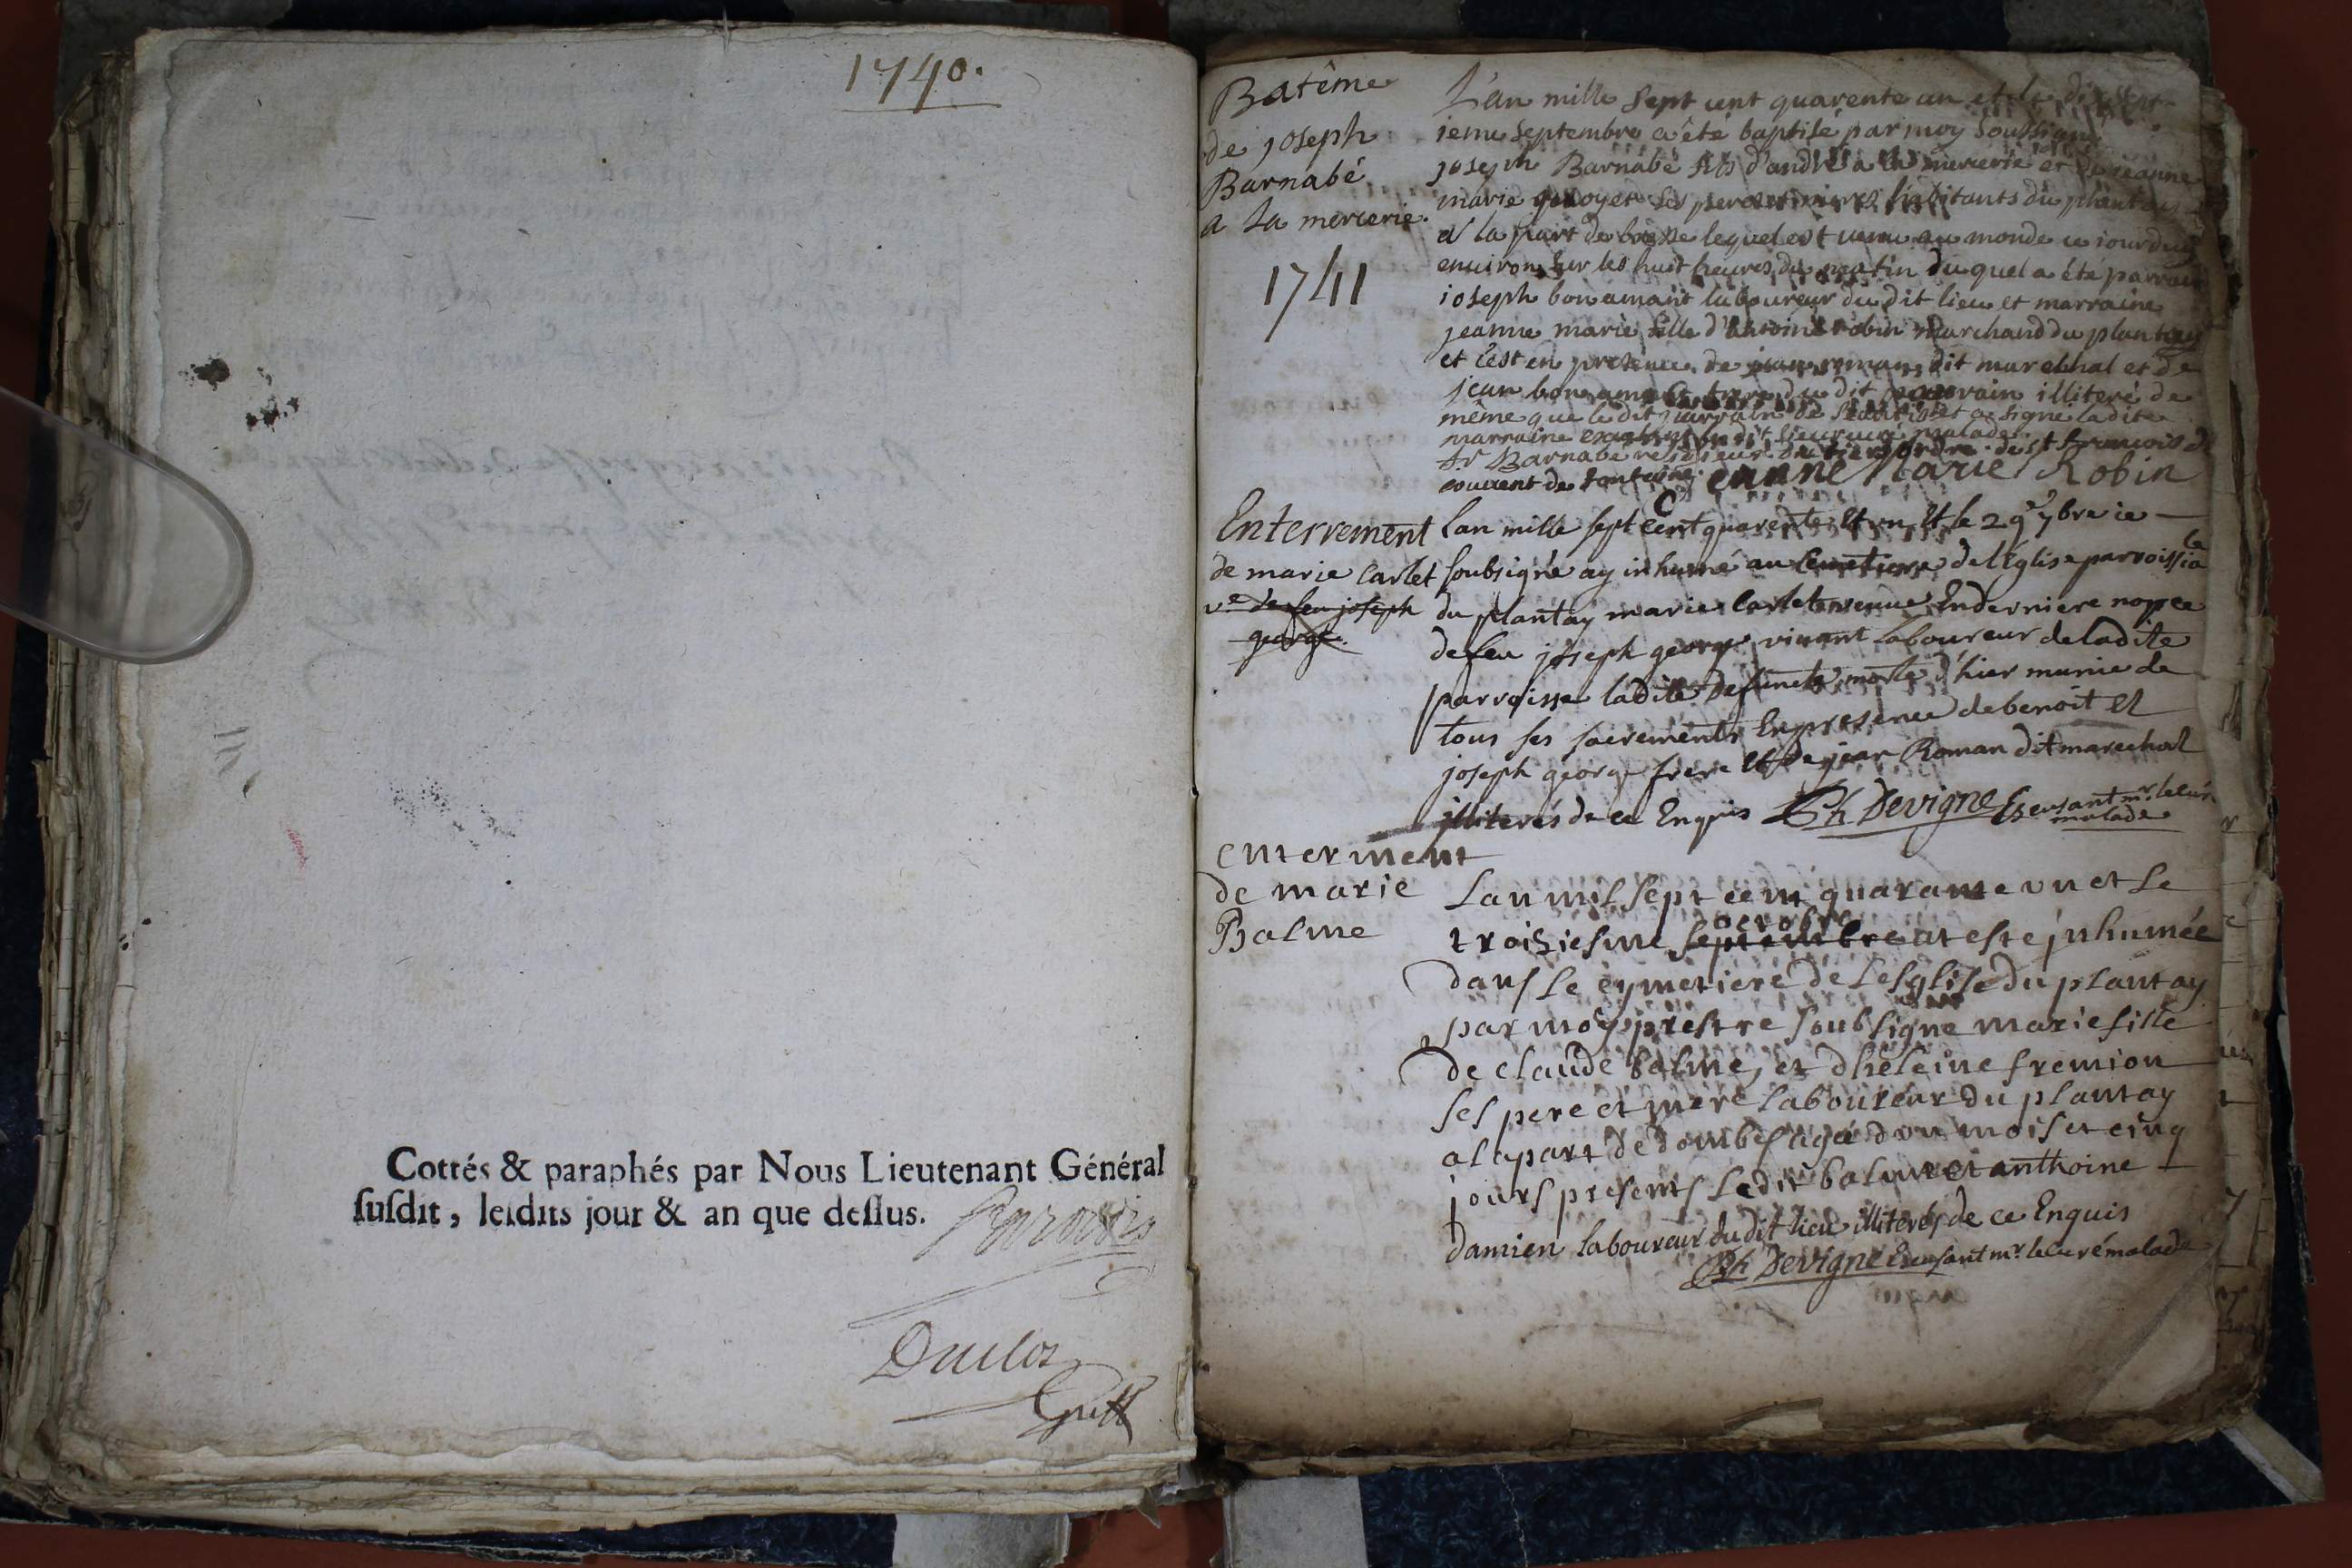 1740.
Cottés & paraphés par Nous Lieutenant Général
susdit, lesdits jour & an que dessus.
Duclos
Batême
de joseph
Barnabé
a la mercerie.
1741
L'an mille sept cent quarente un et le
ieme septembre a été baptisé par moy soussigné
joseph Barnabé fils d'andré a la mercerie et de jeanne
marie goyet ses pere et mere habitants du plantay
a la part de bresse lequel est venu au monde ce jourduy
environ sur les huit heures du matin duquel a été parrain
joseph bonamant laboureur du dit lieu et marraine
jeanne marie fille d'antoine robin marchand du plantay
et c'est en presence de jean roman dit marechal et de
jean frere du dit parrain illiteré de
même que le dit parrain de et a signe ladite
marraine le dit sieur curé malade
fr Barnabé religieux du tiers ordre de st françois du
couvent de jeanne Marie Robin
Enterrement
de marie Carlet
ve de feu joseph
george.
Lan mille sept cent quarente et un et le 29e 7bre ie
soubsigné ay inhumé au cemetiere de l'Eglise parroissia
le
du plantay marie Carlet veuve En derniere nopce
de feu joseph george vivant laboureur de ladite
parroisse ladite defuncte morte d'hier munie de
tous ses sacrements En presence de benoit et
joseph george frere et de jean Roman dit marechal
illiterés de ce Enquis Ph Devigne Excusant mr. le curé
malade
enterment
de marie
Balme
Lan mil sept cent quarante un et le
octobre
troisiesme septembre at esté jnhumée
dans le cymetiere de Lesglise du plantay
par moy prestre soubsigne marie fille
de claude balme, et dheleine fremion
ses pere et mere laboureur du plantay
a la part de dombes agée d'un mois et cinq
jours presents Ledit balme et anthoine
damien laboureur dudit lieu illiterés de ce Enquis
Ph Devigne Excusant mr. le curé malade